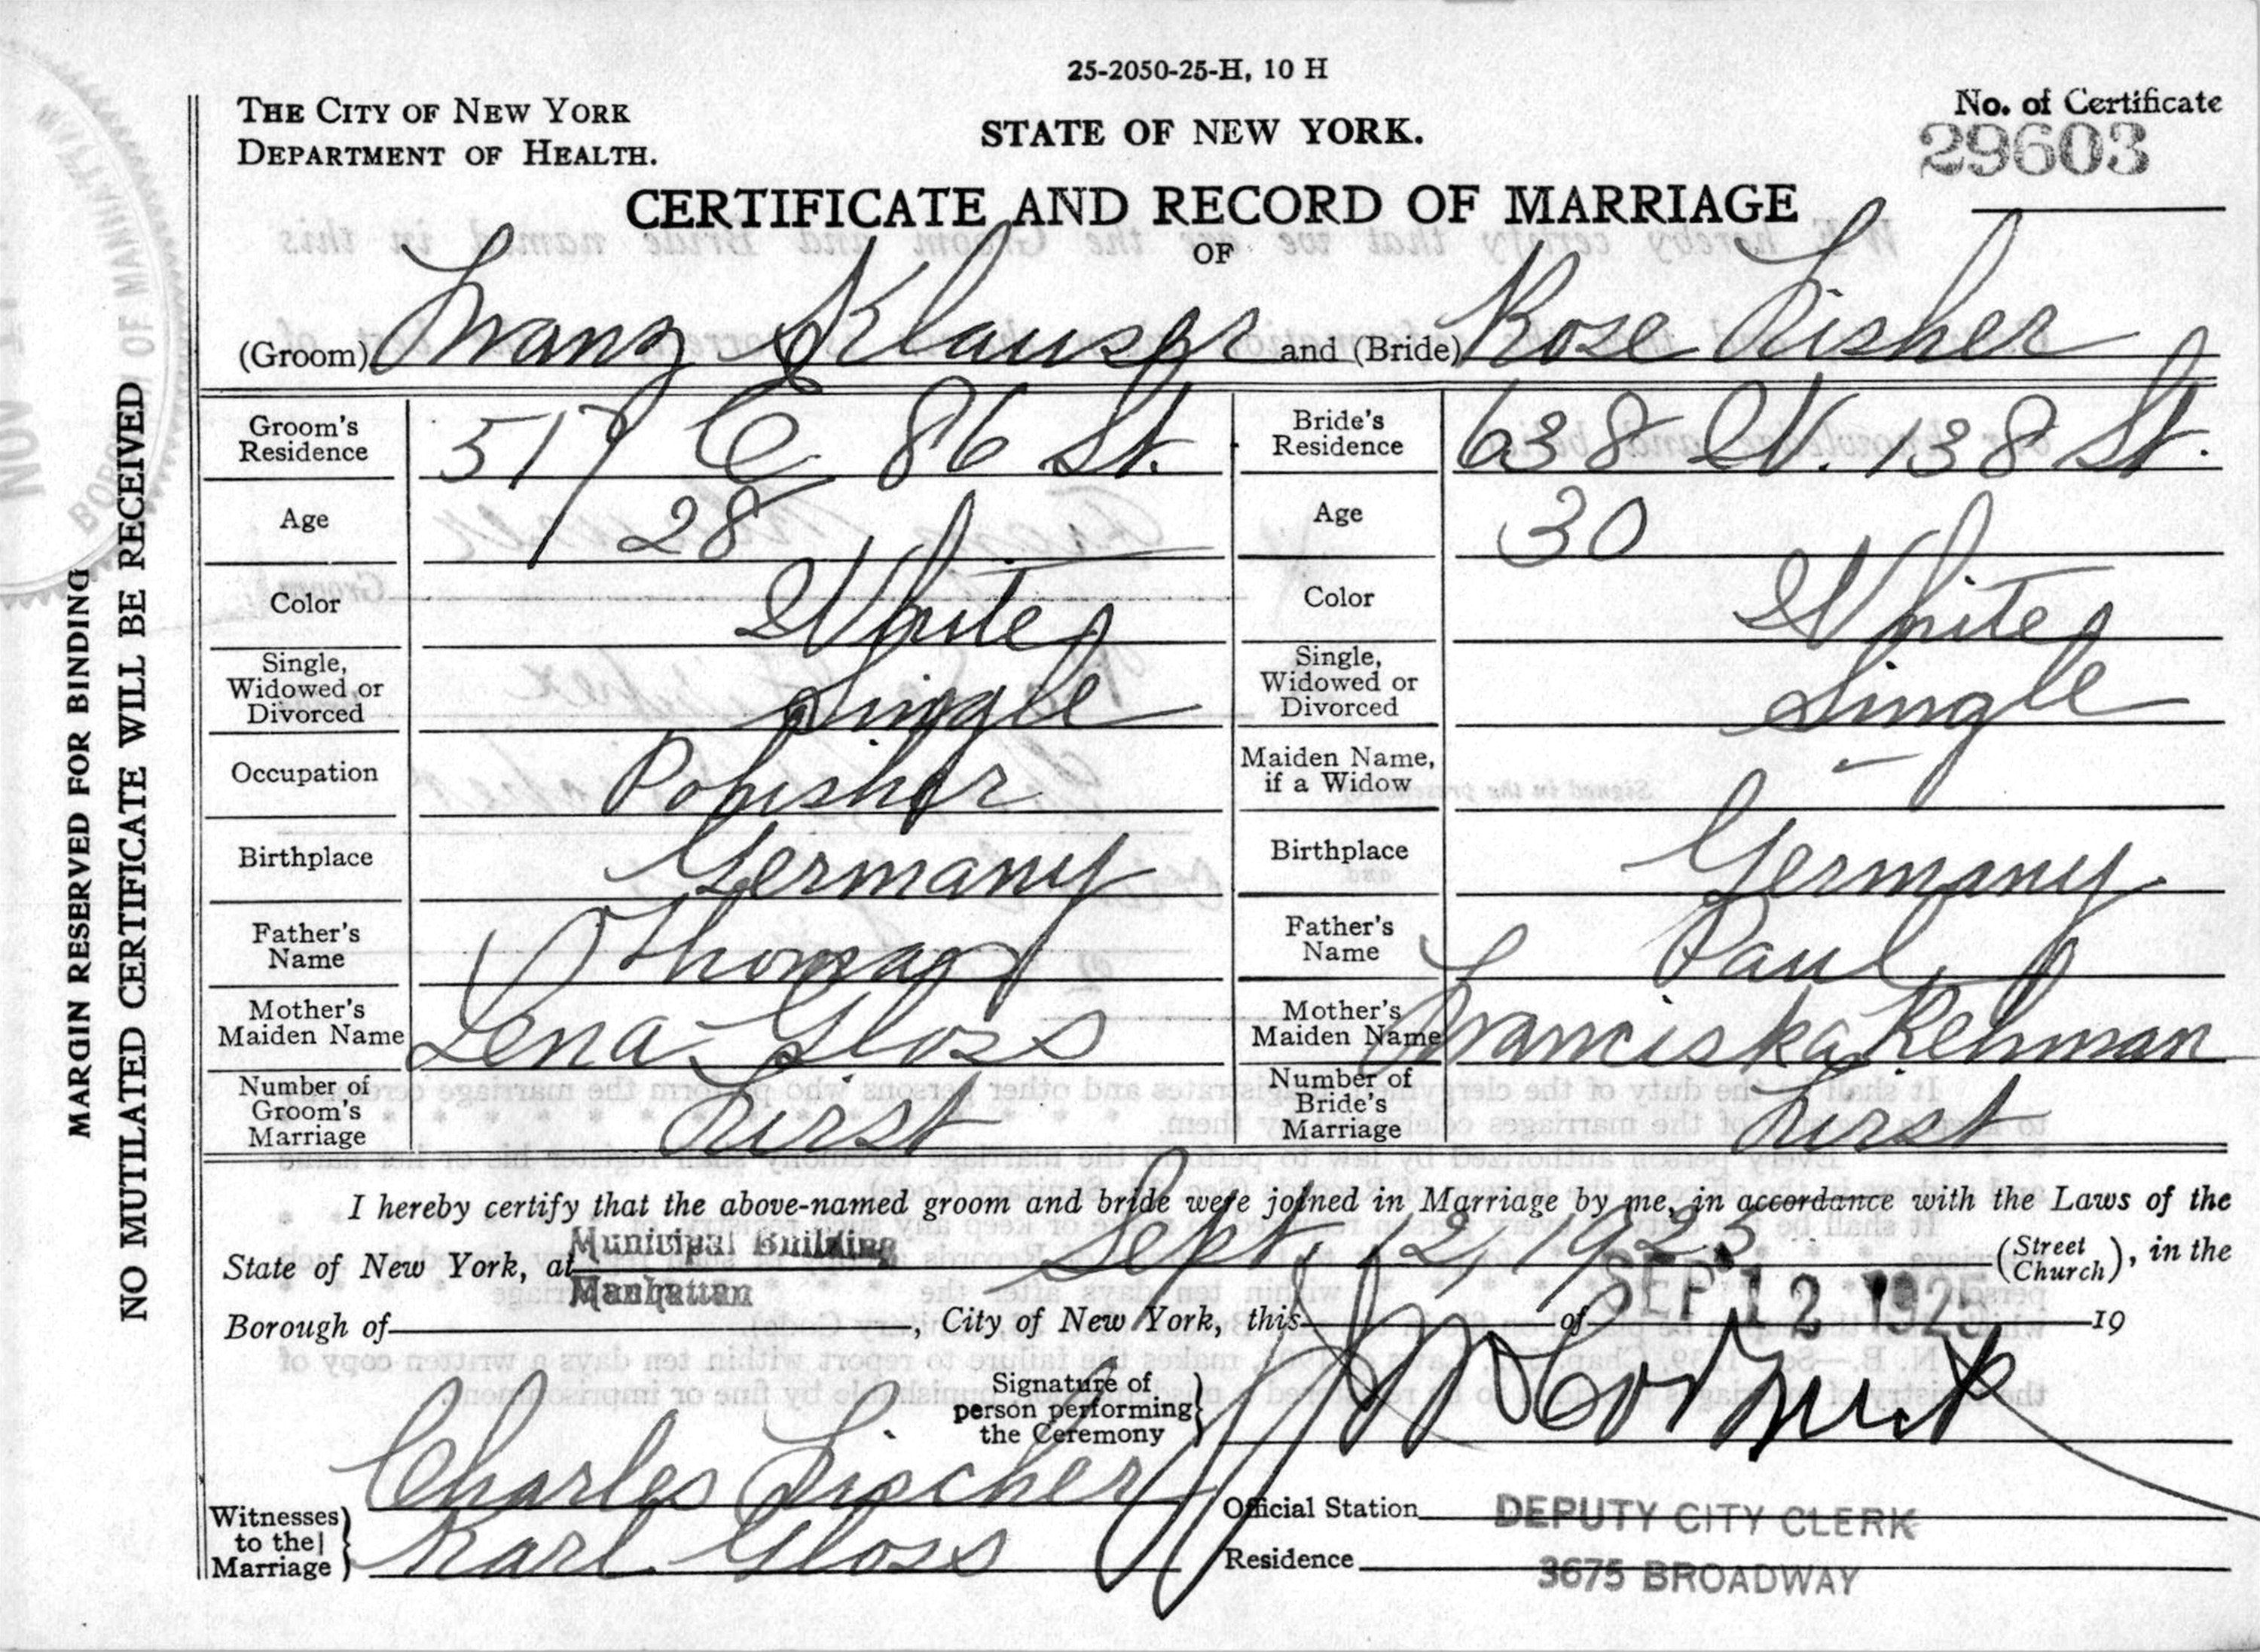 25-2050-25-H, 10 H
THE CITY OF NEW YORK
DEPARTMENT OF HEALTH.
STATE OF NEW YORK.
No. of Certificate
29603
CERTIFICATE AND RECORD OF MARRIAGE
OF
(Groom) Franz Klauser and (Bride) Rose Fisher
Groom's Residence 517 E 86 St. Bride's Residence 638 W. 138 St.
Age 28 Age 30
Color White Color White
Single, Widowed or Divorced Single Single, Widowed or Divorced Single
Occupation Polisher Maiden Name, if a Widow —
Birthplace Germany Birthplace Germany
Father's Name Thomas Father's Name Paul
Mother's Maiden Name Lena Gloss Mother's Maiden Name Franciska Rehman
Number of Groom's Marriage First Number of Bride's Marriage First
I hereby certify that the above-named groom and bride were joined in Marriage by me, in accordance with the Laws of the
State of New York, at Municipal Building Sept. 12, 1925 (Street Church), in the
Manhattan SEP 12 1925
Borough of , City of New York, this of 19
Signature of person performing the Ceremony
Witnesses to the Marriage
Charles Fischer
Karl Gloss
Official Station DEPUTY CITY CLERK
Residence 3675 BROADWAY
MARGIN RESERVED FOR BINDING
NO MUTILATED CERTIFICATE WILL BE RECEIVED